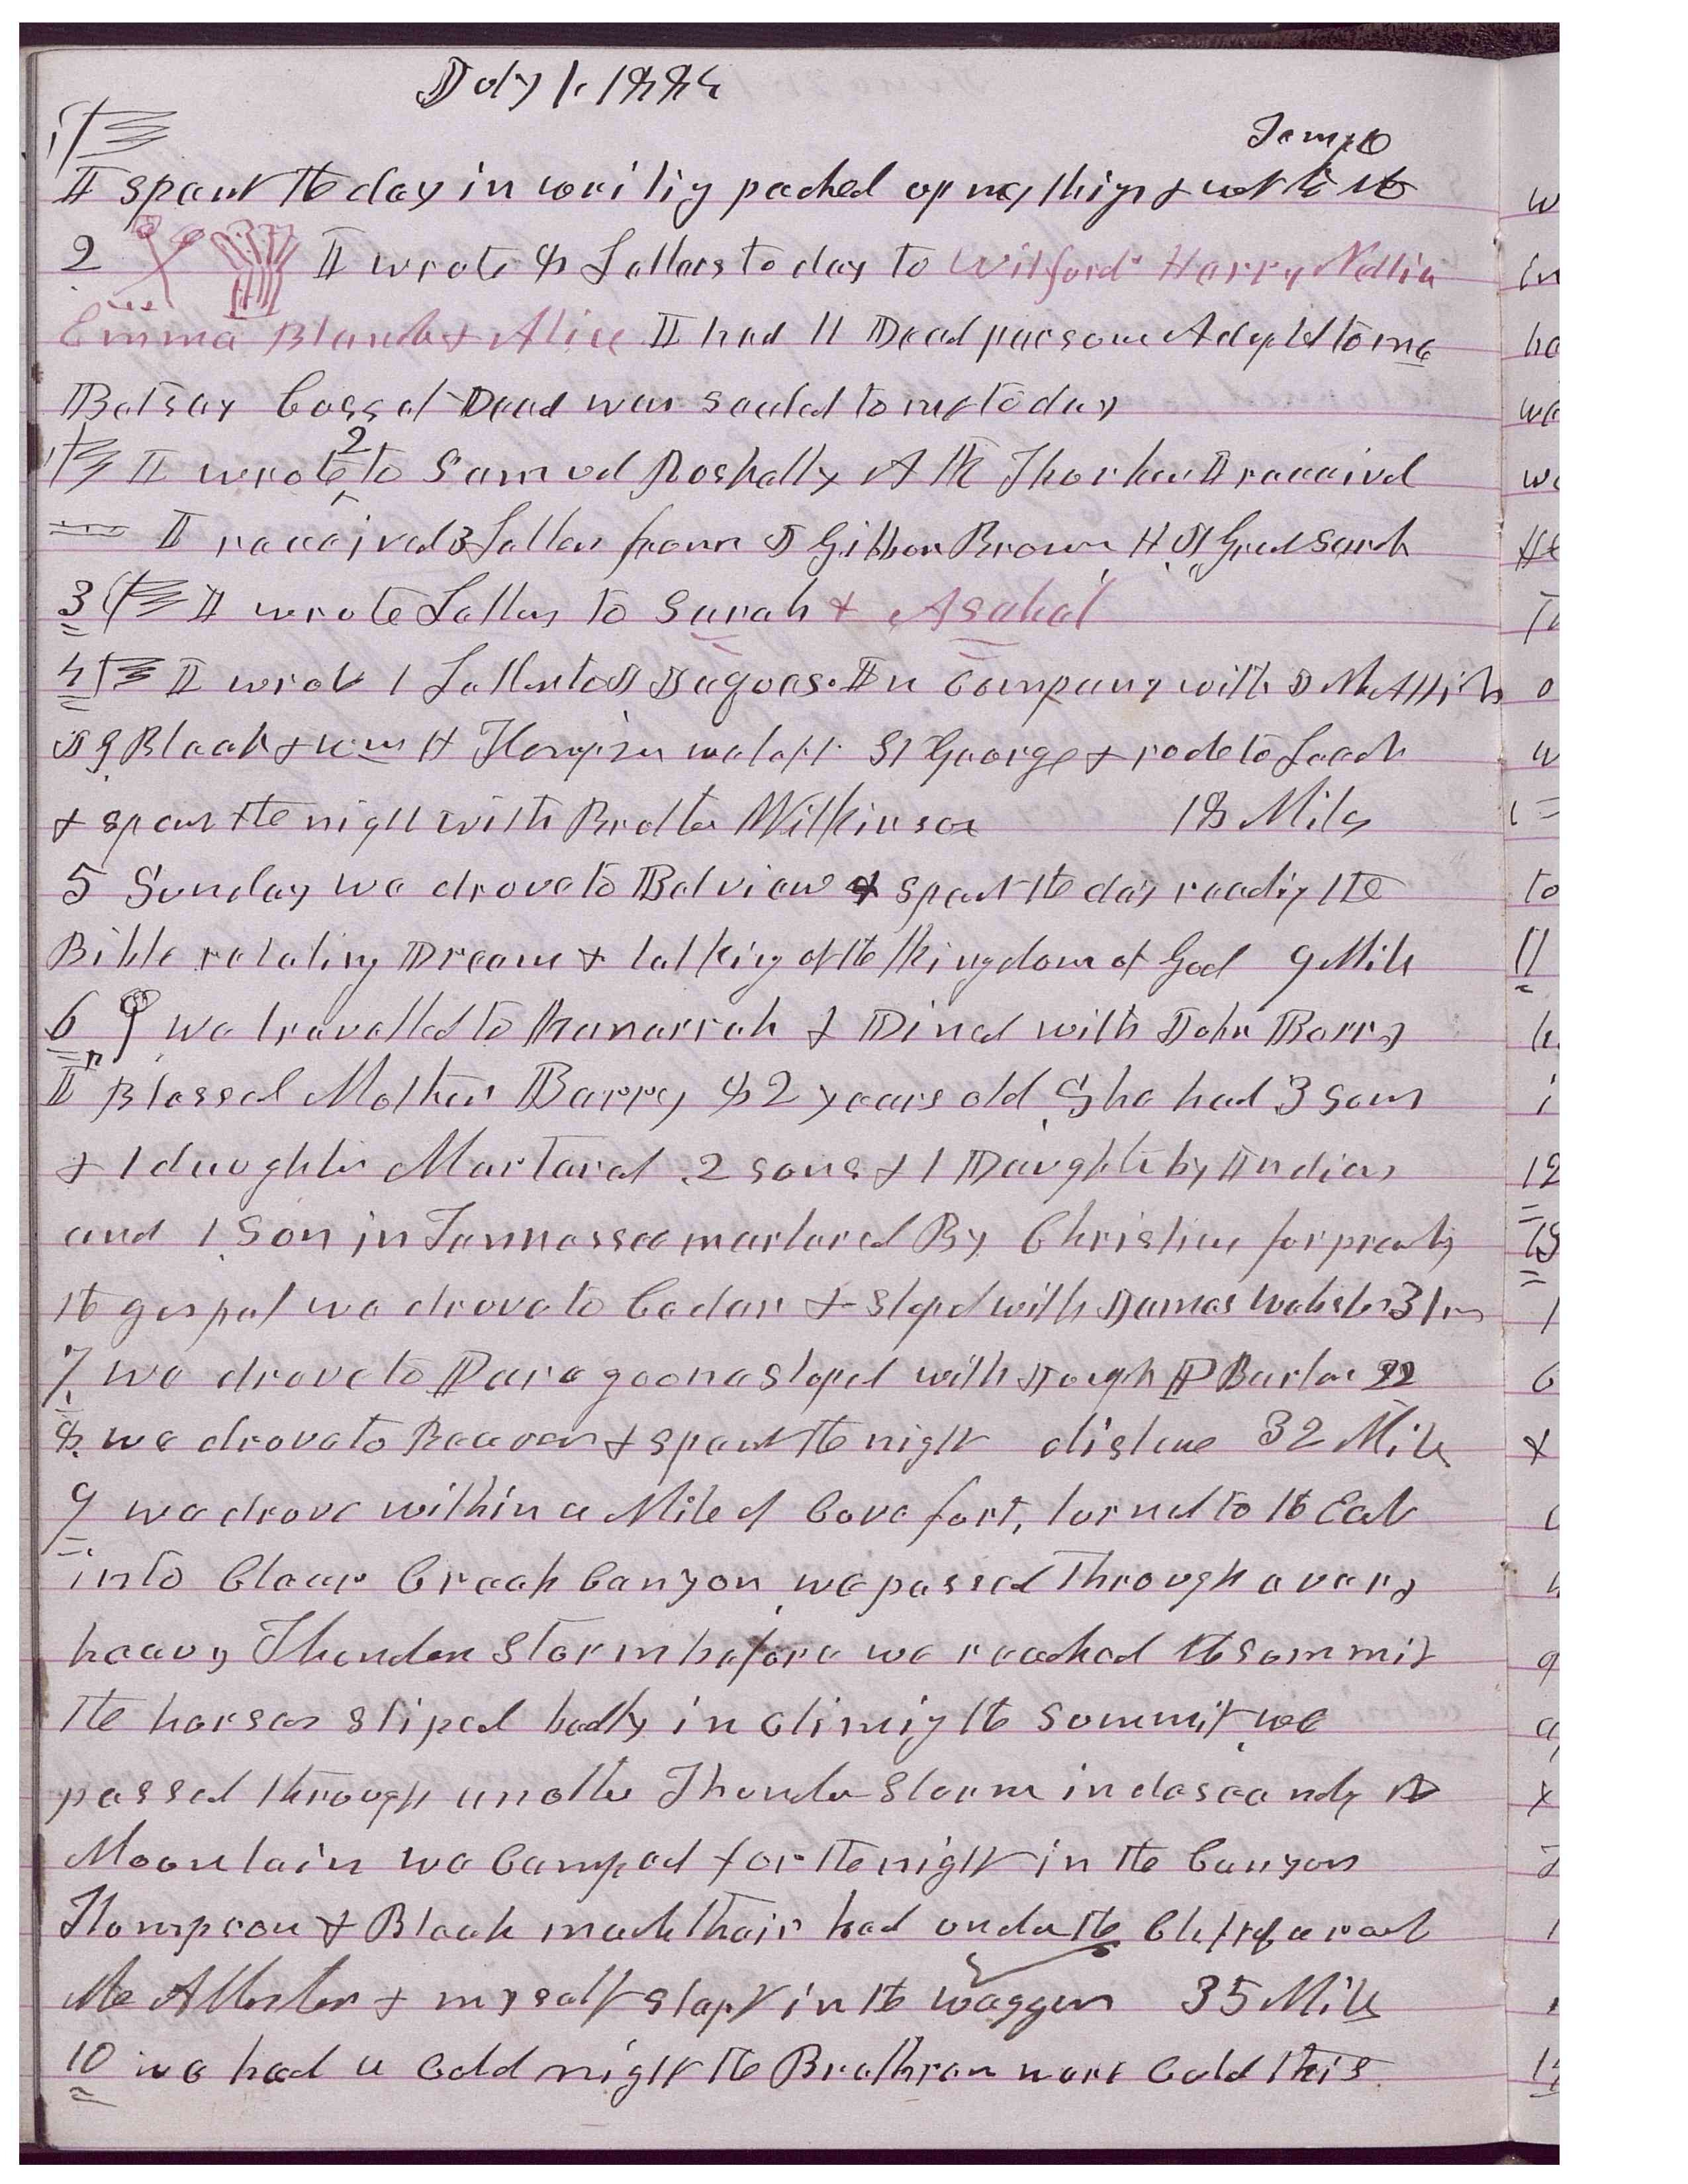 July 1. 1885
Temple
I spent the day in writing packed up my things & went to the
2 I wrote 8 Letters to day to Wilford Harry Nellie
Emma Blanch & Alice I had 11 Dead persons Adopted to me
Betsey Cosset Dead was sealed to me to day
I wrote 2 to Samuel Roskelly A K Thurber I received
I received 3 Letters from J Gibson Brown, H Sarah
3 I wrote Letters to Sarah & Asahel
4 I wrote 1 Letter to J Jaques. In Company with D McAllister
J G Bleak & Wm H Thompson we left St George & rode to Leeds
& spent the night with Brother Wilkinson 18 Miles
5 Sunday we drove to Belview & spent the day reading the
Bible relating Dreams & talking of the Kingdom of God 9 Miles
6 we travelled to Kanarrah & Dined with John Berry
I Blessed Mother Barry 82 years old She had 3 sons
& 1 daughter Martered 2 sons & 1 Daughter by Indians
and 1 Son in Tennessee martered By Christians for preaching
the gospel we drove to Cedar & stoped with James Webster 31 m
7. we drove to Paragoona stoped with Joseph P Barton 22
8. we drove to Beaver & spent the night distance 32 Miles
9 we drove within a Mile of Cove fort, turned to the East
into Clear Creek Canyon we passed through a very
heavy Thunder Storm before we reached the summit
the horses sliped badly in climing the summit, we
passed through another Thunder Storm in descending the
Mountain we Camped for the night in the Canyon
Thompson & Bleak made their bed under the
McAllister & myself slept in the waggon 35 Miles
10 we had a Cold night the Brethren were Cold this